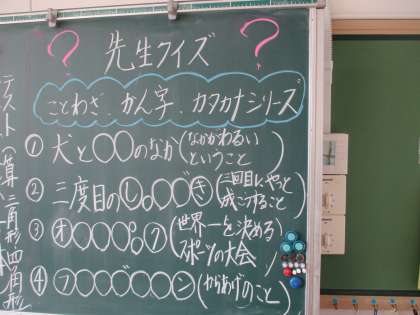 ? 先生クイズ ?
ことわざ、かん字、カタカナシリーズ
① 犬と○○のなか(なかがわるいということ)
② 三度目のし○○○き(三回目にやっと成こうすること)
③ オ○○○○ク(世界一を決めるスポーツの大会)
④ フ○○○○○ン(からあげのこと)
テスト(算
三角形四角形